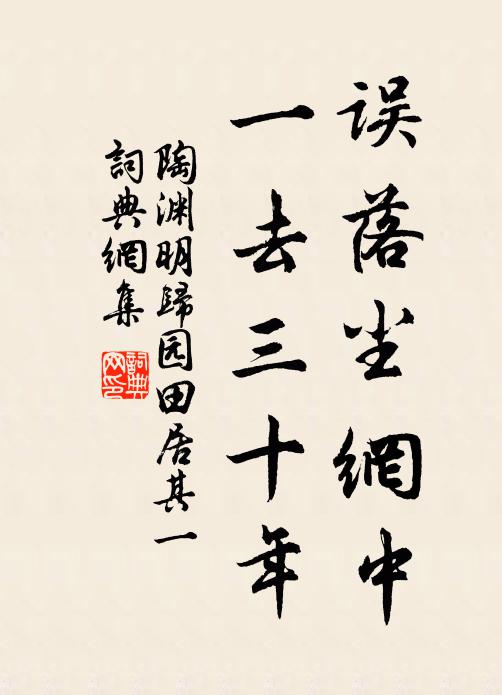 误落尘網中
一去三十年
陶渊明歸园田居其一
詞典網集
詞典
网印